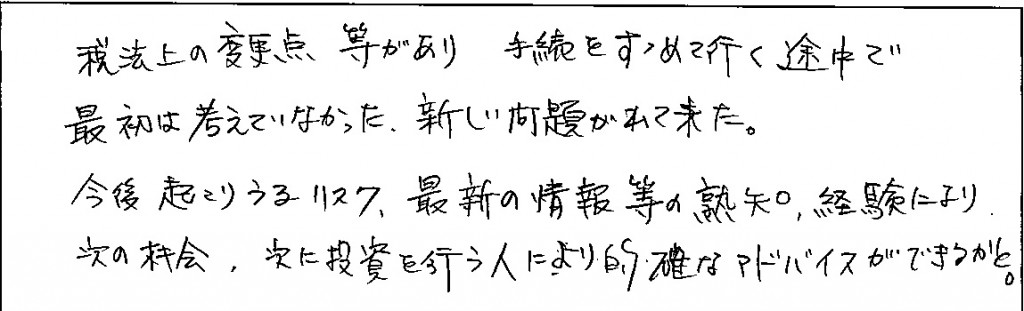 税法上の変更点 等があり 手続をすゝめて行く途中で
最初は考えていなかった、新しい問題がでて来た。
今後起こりうるリスク、最新の情報等の熟知、経験により
次の機会、次に投資を行う人により的確なアドバイスができるかと。